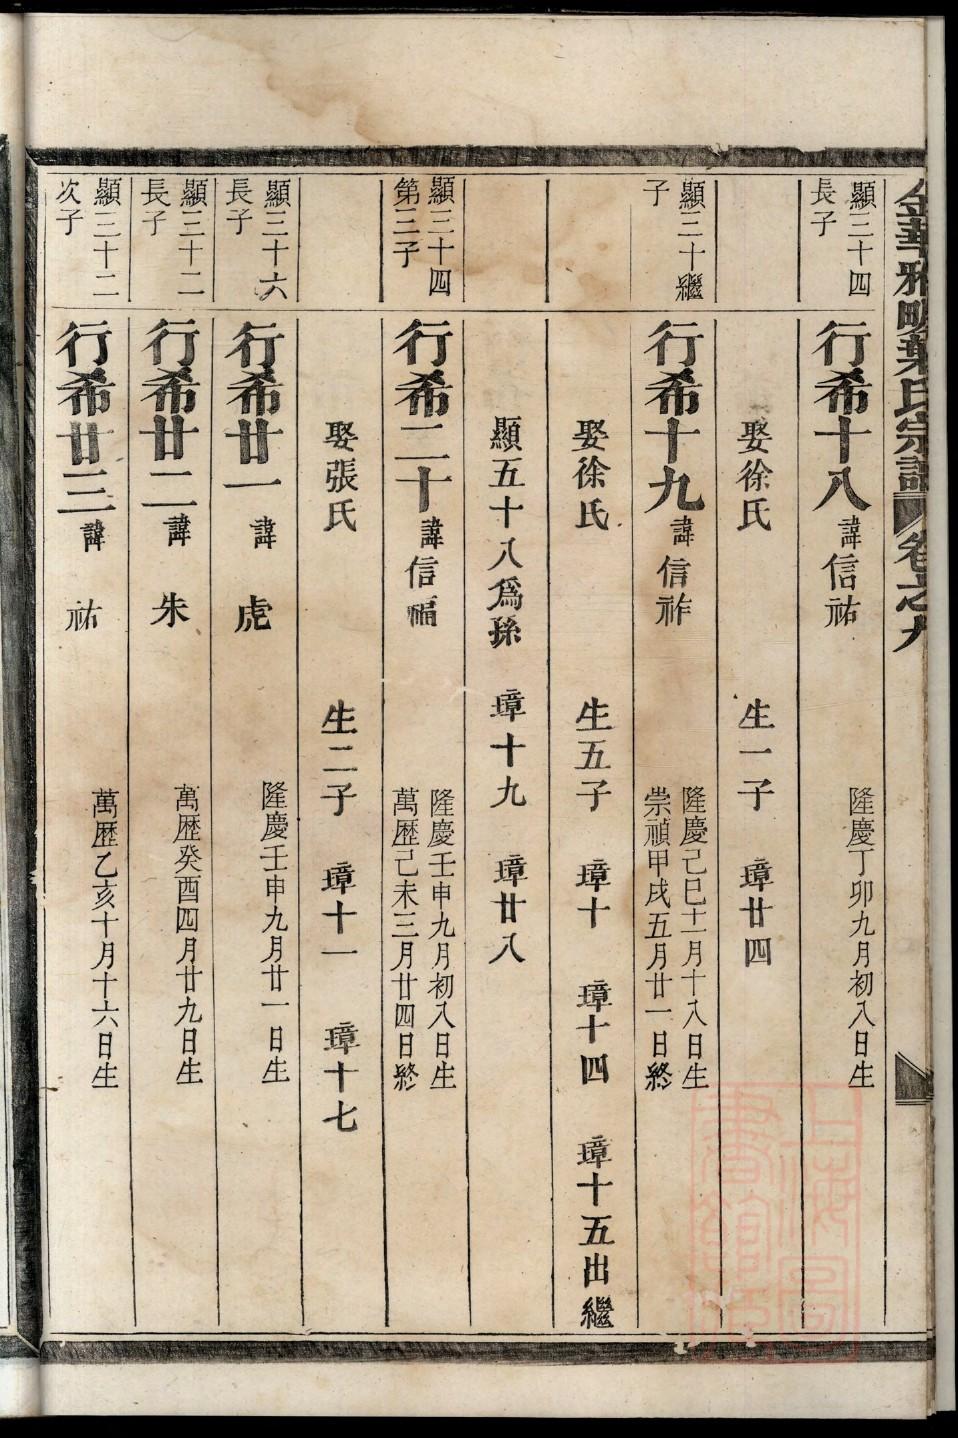 金華雅畈葉氏宗譜 卷之九
顯三十四
長子
行希十八 諱信祐
隆慶丁卯九月初八日生
娶徐氏 生一子 璋廿四
顯三十繼
子
行希十九 諱信祚
隆慶己巳十一月十八日生
崇禎甲戌五月廿一日終
娶徐氏 生五子 璋十 璋十四 璋十五出繼
顯五十八爲孫 璋十九 璋廿八
顯三十四
第三子
行希二十 諱信福
隆慶壬申九月初八日生
萬歷己未三月廿四日終
娶張氏 生二子 璋十一 璋十七
顯三十六
長子
行希廿一 諱 虎
隆慶壬申九月廿一日生
顯三十二
長子
行希廿二 諱 朱
萬歷癸酉四月廿九日生
顯三十二
次子
行希廿三 諱 祐
萬歷乙亥十月十六日生
上海圖
書館藏